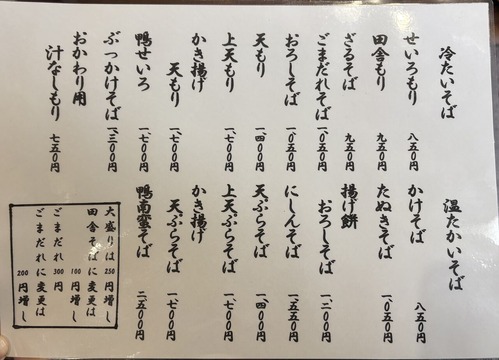 冷たいそば
せいろもり 八五〇円
田舎もり 九五〇円
ざるそば 九五〇円
ごまだれそば 一〇五〇円
おろしそば 一〇五〇円
天もり 一、四〇〇円
上天もり 一、七〇〇円
かき揚げ
天もり 一、七〇〇円
鴨せいろ 一、七〇〇円
ぶっかけそば 一、三〇〇円
おかわり用
汁なしもり 七五〇円
温たかいそば
かけそば 八五〇円
たぬきそば 一、〇五〇円
揚げ餅
おろしそば 一、二〇〇円
にしんそば 一、五五〇円
天ぷらそば 一、四〇〇円
上天ぷらそば 一、七〇〇円
かき揚げ
天ぷらそば 一、七〇〇円
鴨南蛮そば 二、五〇〇円
大盛りは250円増し
田舎そばに変更は
100円増し
ごまだれ300円
ごまだれに変更は
200円増し